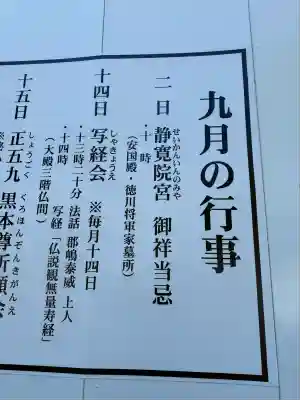 九月の行事
二日 静寛院宮 御祥当忌
せいかんいんのみや
・十時
（安国殿・徳川将軍家墓所）
十四日 写経会 ※毎月十四日
しゃきょうえ
・十三時二十分 法話 郡嶋泰威 上人
・十四時 写経「仏説観無量寿経」
（大殿三階仏間）
十五日 正五九 黒本尊祈願会
しょうごく くろほんぞんきがんえ